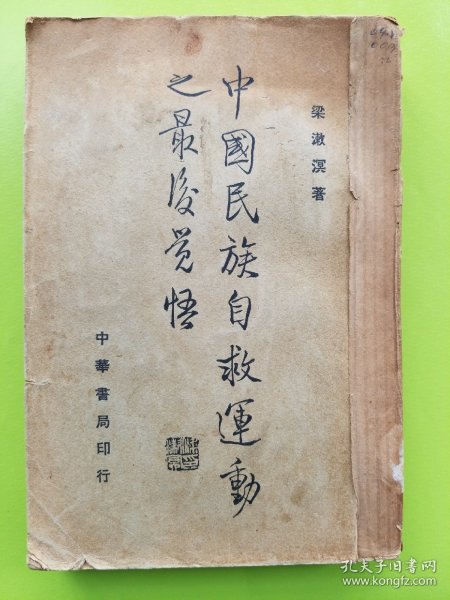 梁漱溟著
中國民族自救運動
之最後覚悟
中華書局印行
孔夫子旧书网
www.kongfz.com